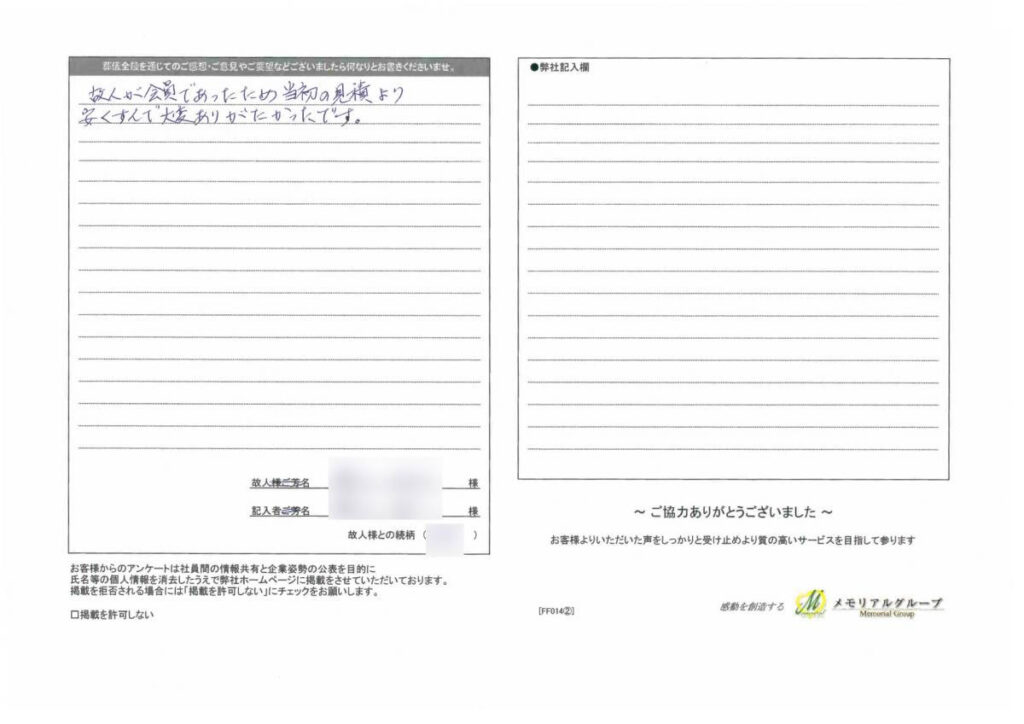 葬儀全般を通じてのご感想・ご意見やご要望などございましたら何なりとお書きくださいませ。
故人が会員であったため当初の見積より
安くすんで大変ありがたかったです。
故人様ご芳名 様
記入者ご芳名 様
故人様との続柄 ( )
お客様からのアンケートは社員間の情報共有と企業姿勢の公表を目的に
氏名等の個人情報を消去したうえで弊社ホームページに掲載をさせていただいております。
掲載を拒否される場合には「掲載を許可しない」にチェックをお願いします。
□掲載を許可しない
●弊社記入欄
～ ご協力ありがとうございました ～
お客様よりいただいた声をしっかりと受け止めより質の高いサービスを目指して参ります
[FF014②]
感動を創造する
メモリアルグループ
Memorial Group